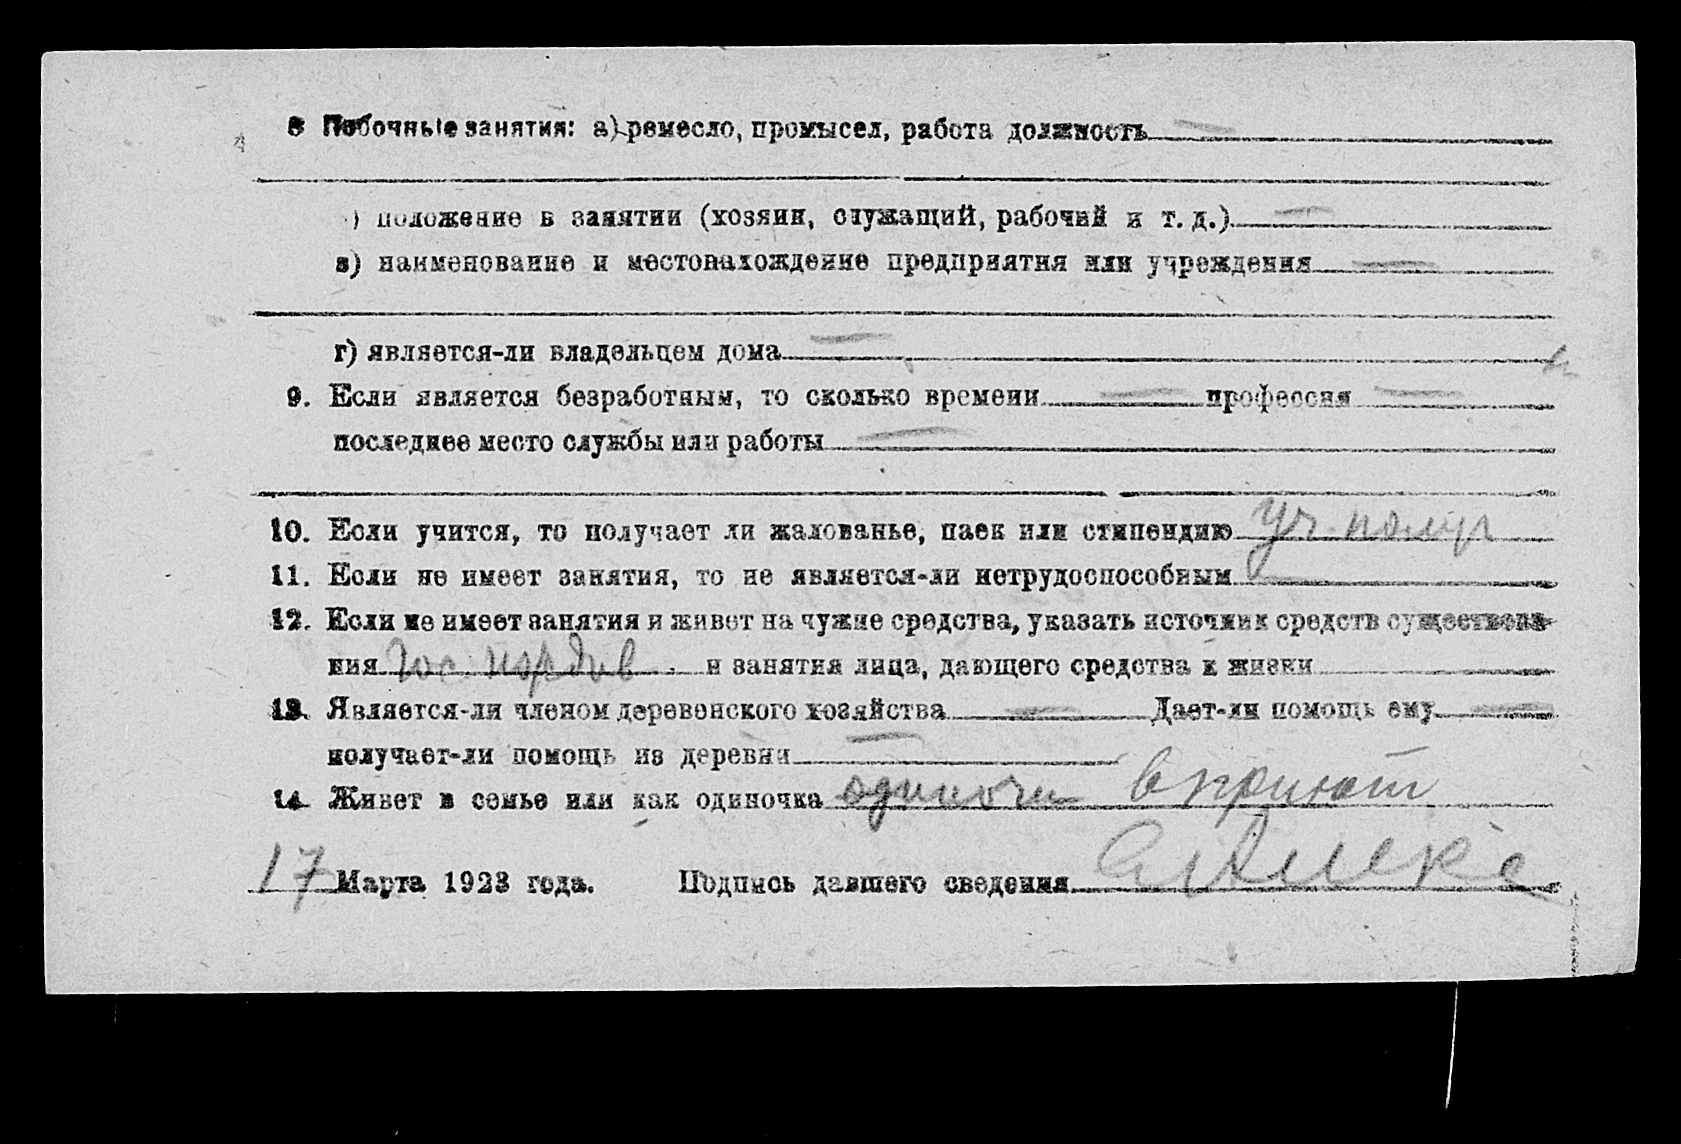 8 Побочные занятия: а) ремесло, промысел, работа должность —
) положение в занятии (хозяин, служащий, рабочий и т. д.) —
в) наименование и местонахождение предприятия или учреждения —
г) является-ли владельцем дома —
9. Если является безработным, то сколько времени — профессия —
последнее место службы или работы —
10. Если учится, то получает ли жалованье, паек или стипендию уч.
11. Если не имеет занятия, то не является-ли нетрудоспособным
12. Если не имеет занятия и живет на чужие средства, указать источник средств существова-
ния гос. и занятия лица, дающего средства к жизни
13. Является-ли членом деревенского хозяйства — Дает-ли помощь ему —
получает-ли помощь из деревни —
14 Живет в семье или как одиночка одиночка в приют
17 Марта 1923 года. Подпись давшего сведения